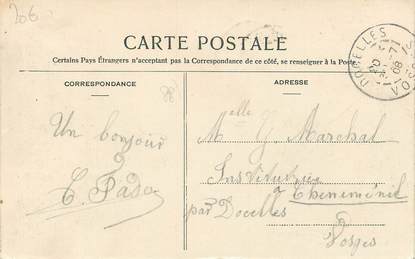 206
CARTE POSTALE
Certains Pays Étrangers n'acceptant pas la Correspondance de ce côté, se renseigner à la Poste.
CORRESPONDANCE
ADRESSE
DOCELLES
08
Un bonjour
Melle G. Marchal
Institutrice
à Cheniménil
par Docelles
Vosges